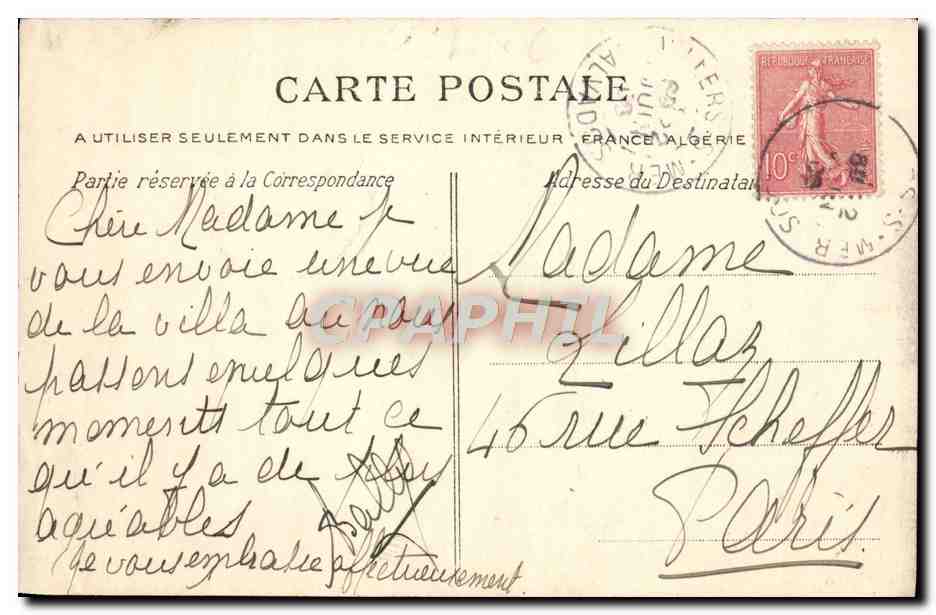 CARTE POSTALE
A UTILISER SEULEMENT DANS LE SERVICE INTÉRIEUR FRANCE ALGÉRIE
Partie réservée à la Correspondance
Chère Madame je
vous envoie une vue
de la villa ou nous
passons quelques
moments tout ce
qu'il y a de plus
agréables
Je vous embrasse affectueusement
Adresse du Destinatai
Madame
Zillaz
46 rue Scheffer
Paris.
REPUBLIQUE FRANÇAISE
10c
CALVADOS
S-MER
CPAPHIL